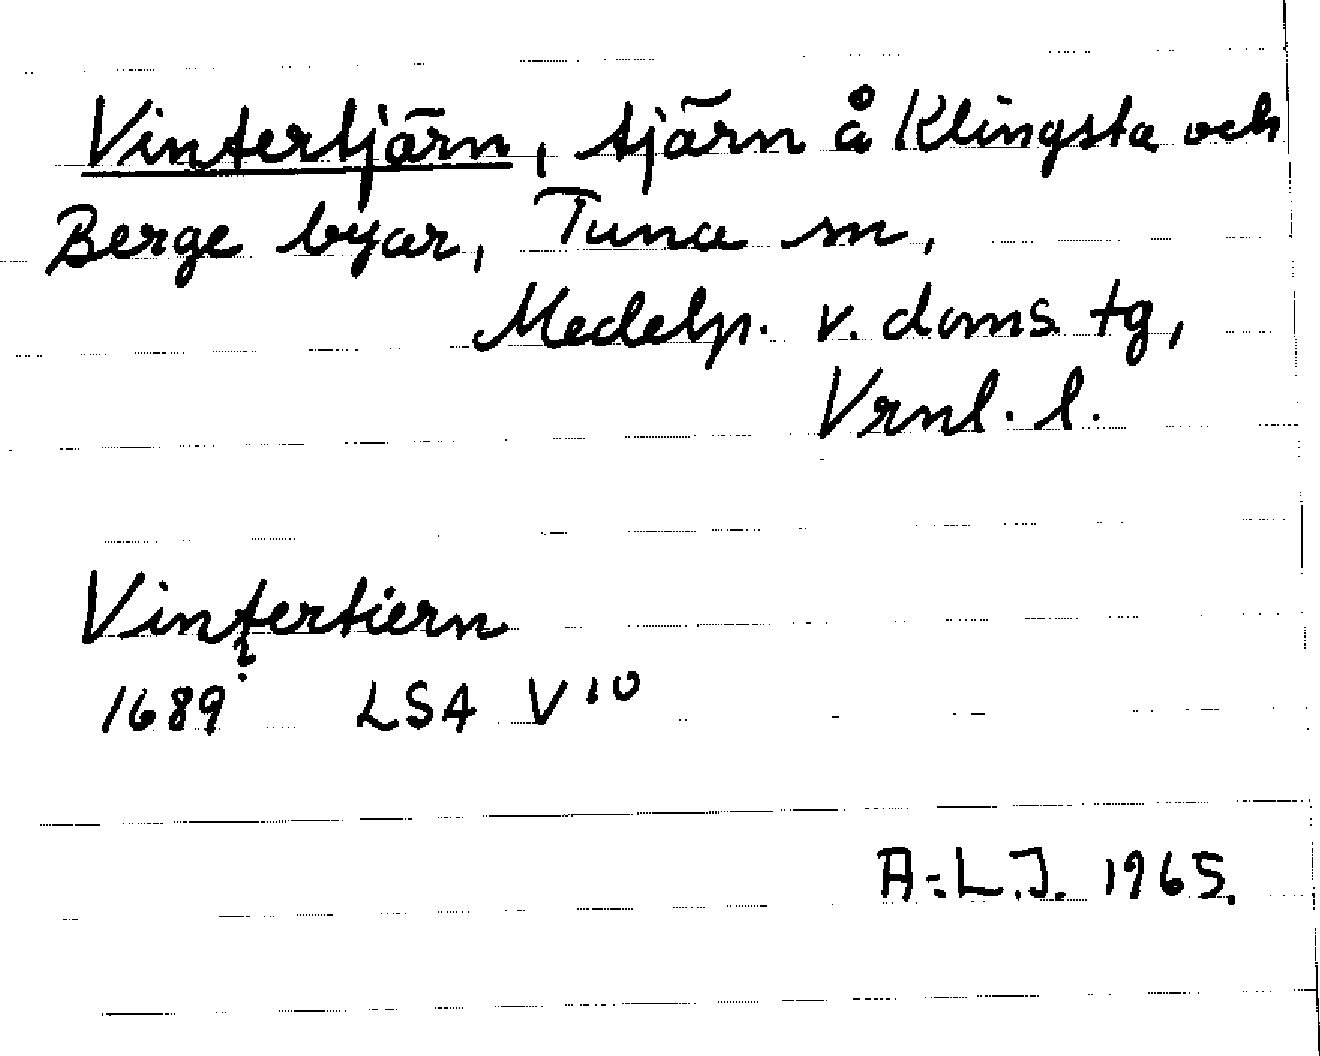 Vintertjärn, tjärn å Klingsta och
Berge byar, Tuna sn,
Medelp. v. doms. tg,
Vrnl. l.
Vintertiern
1689 LSA V 10
A-L.J. 1965.